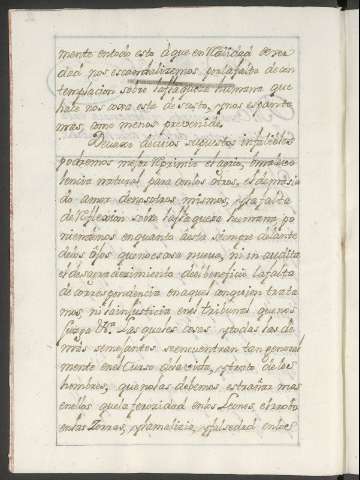 mente en todo esto à que en Realidad de ver
dad nos escandalizemos por la falta de con
templacion sobre la flaqueza humana que
hace nos coxa este de susto, y nos espanta
mas, como menos prevenido.
Devaxo de estos supuestos infalibles
podremos mejor Reprimir el
lencia natural para con los otros, el demasia
do amor de nosotros mismos, y la falta
de Reflexion sobre la flaqueza humana, po
niendonos en quanto à esta siempre delante
de los ojos que no es cosa nueva, ni in audita
el desagradecimiento de el beneficio la falta
de correspondencia en aquel con quien trata
mos, ni la injusticia en el tribunal que nos
Juzga &c. Las quales cosas y todas las de
mas semejantes se encuentran tan general
mente en el Curso de la vida, y trato de los
hombres, que no las debemos estrañar mas
en ellos que la ferozidad en los Leones, el
en las Zorras, y la malicia, y falsedad entre